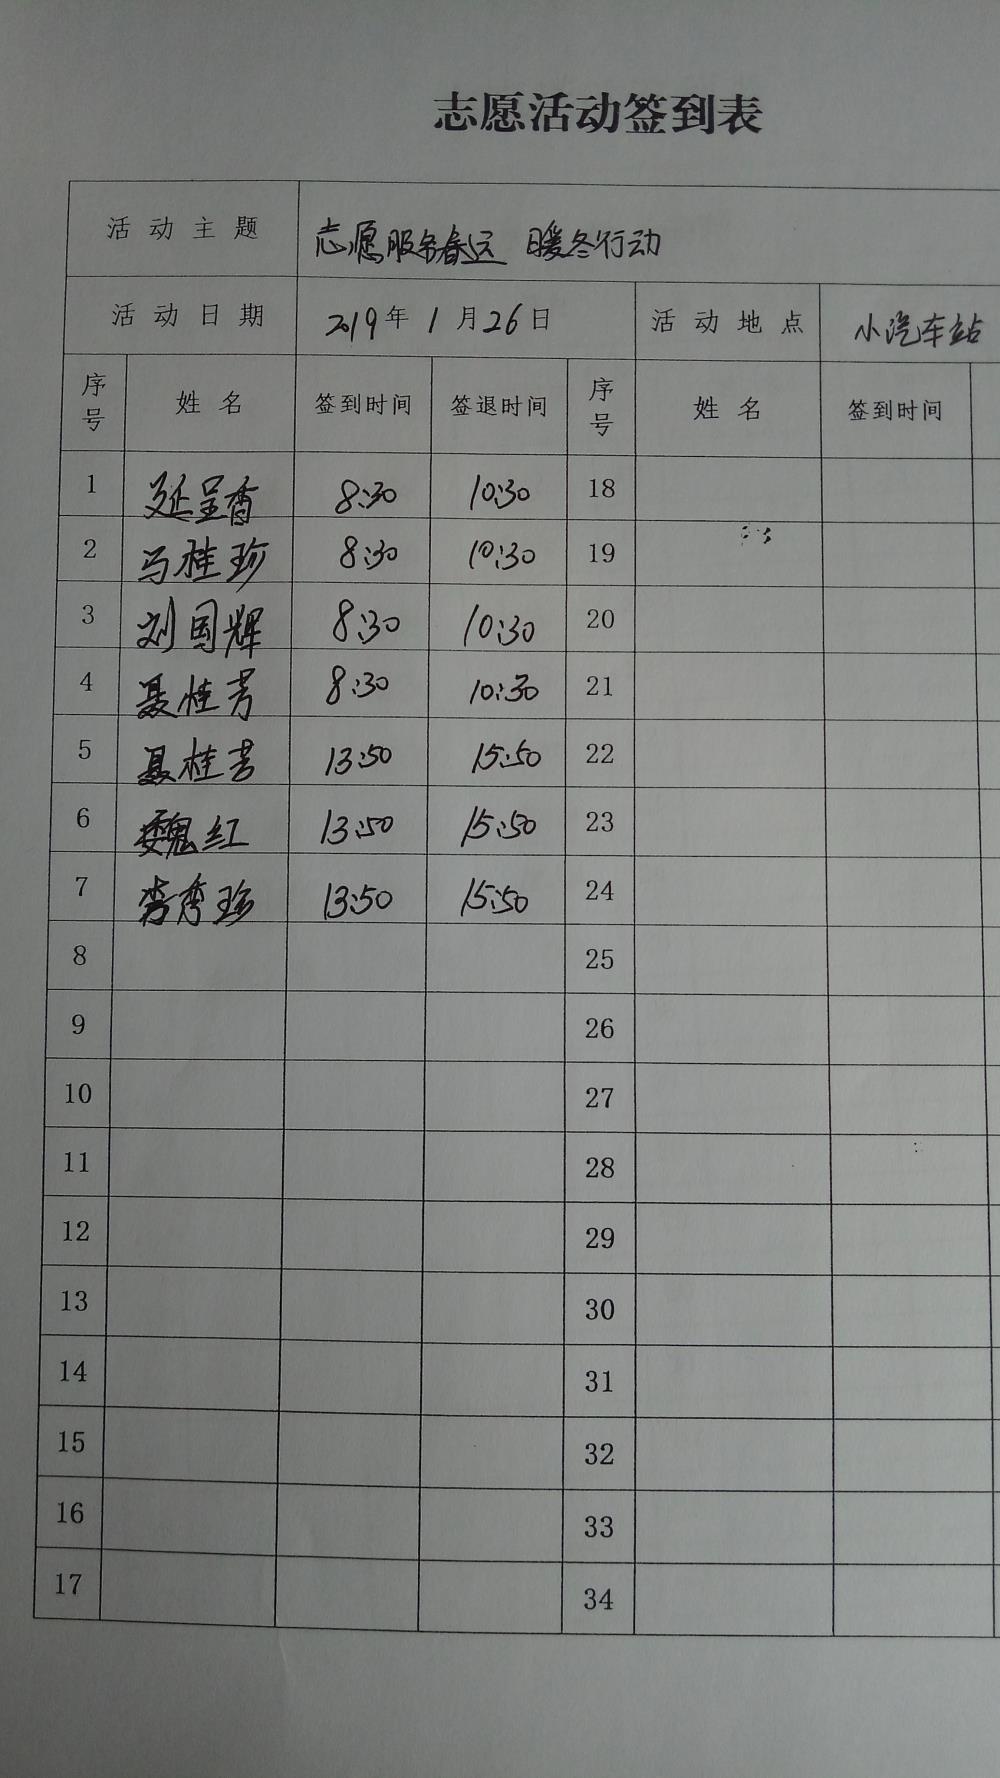 志愿活动签到表
活动主题 志愿服务春运 暖冬行动
活动日期 2019年1月26日 活动地点 小汽车站
序号 姓名 签到时间 签退时间 序号 姓名 签到时间
1 延呈香 8:30 10:30 18
2 马桂珍 8:30 10:30 19
3 刘国辉 8:30 10:30 20
4 聂桂芳 8:30 10:30 21
5 聂桂芳 13:50 15:50 22
6 魏红 13:50 15:50 23
7 李秀珍 13:50 15:50 24
8 25
9 26
10 27
11 28
12 29
13 30
14 31
15 32
16 33
17 34